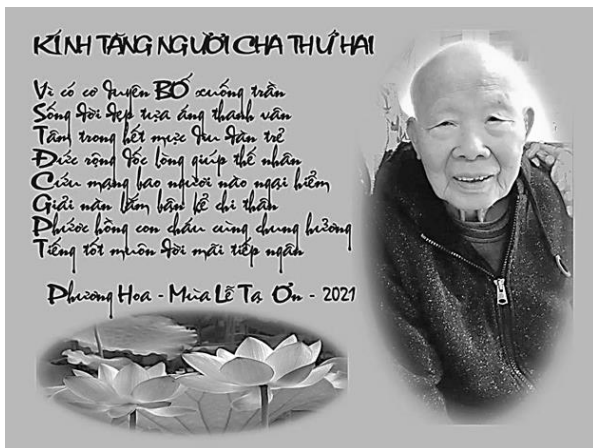 KÍNH TẶNG NGƯỜI CHA THỨ HAI
Vì có cơ duyên BỐ xuống trần
Sống đời đẹp tựa áng thanh vân
Tâm trong hết mực dìu đàn trẻ
Đức rộng dốc lòng giúp thế nhân
Cứu mạng bao người nào ngại hiểm
Giải nàn lắm bận kể chi thân
Phước hồng con cháu cùng chung hưởng
Tiếng tốt muôn đời mãi tiếp ngân
Phương Hoa - Mùa Lễ Tạ Ơn - 2021